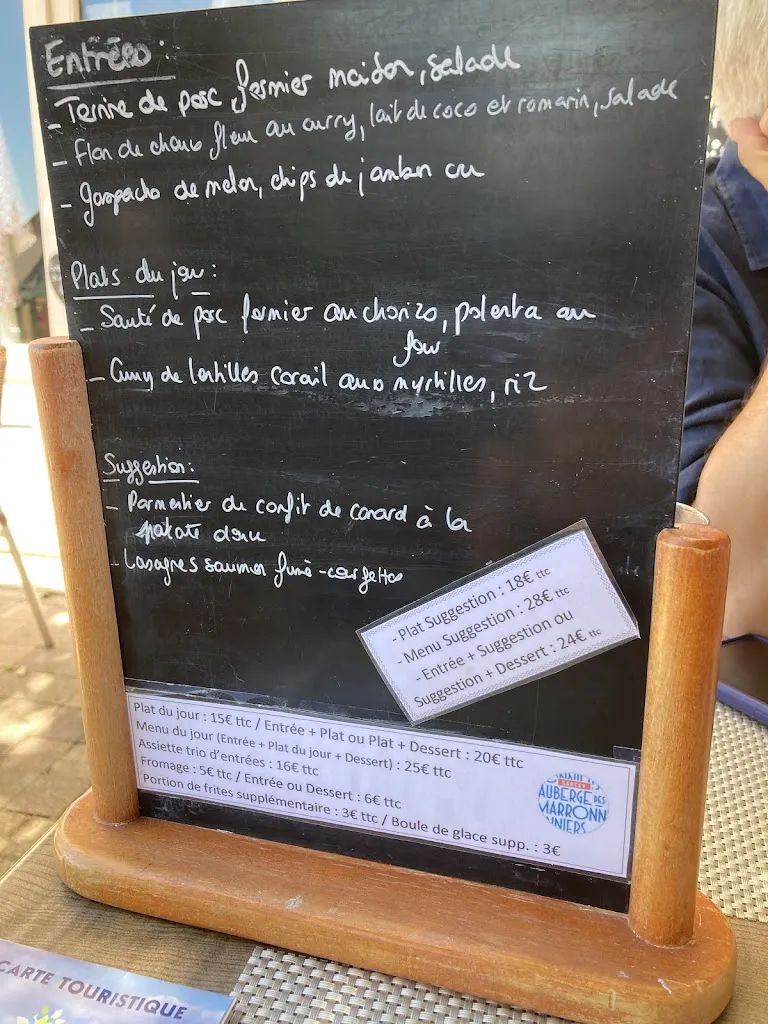 Entrées :
- Terrine de porc fermier maison, salade
- Flan de chou fleur au curry, lait de coco et romarin, salade
- gaspacho de melon, chips de jambon cru
Plats du jour :
- Sauté de porc fermier au chorizo, polenta au
four
- Curry de lentilles corail aux myrtilles, riz
Suggestion :
- Parmentier de confit de canard à la
patate douce
- Lasagnes saumon fumé - courgettes
- Plat Suggestion : 18€ ttc
- Menu Suggestion : 28€ ttc
- Entrée + Suggestion ou
Suggestion + Dessert : 24€ ttc
Plat du jour : 15€ ttc / Entrée + Plat ou Plat + Dessert : 20€ ttc
Menu du jour (Entrée + Plat du jour + Dessert) : 25€ ttc
Assiette trio d'entrées : 16€ ttc
Fromage : 5€ ttc / Entrée ou Dessert : 6€ ttc
Portion de frites supplémentaire : 3€ ttc / Boule de glace supp. : 3€
AUBERGE DES
MARRONN
NIERS
CARTE TOURISTIQUE